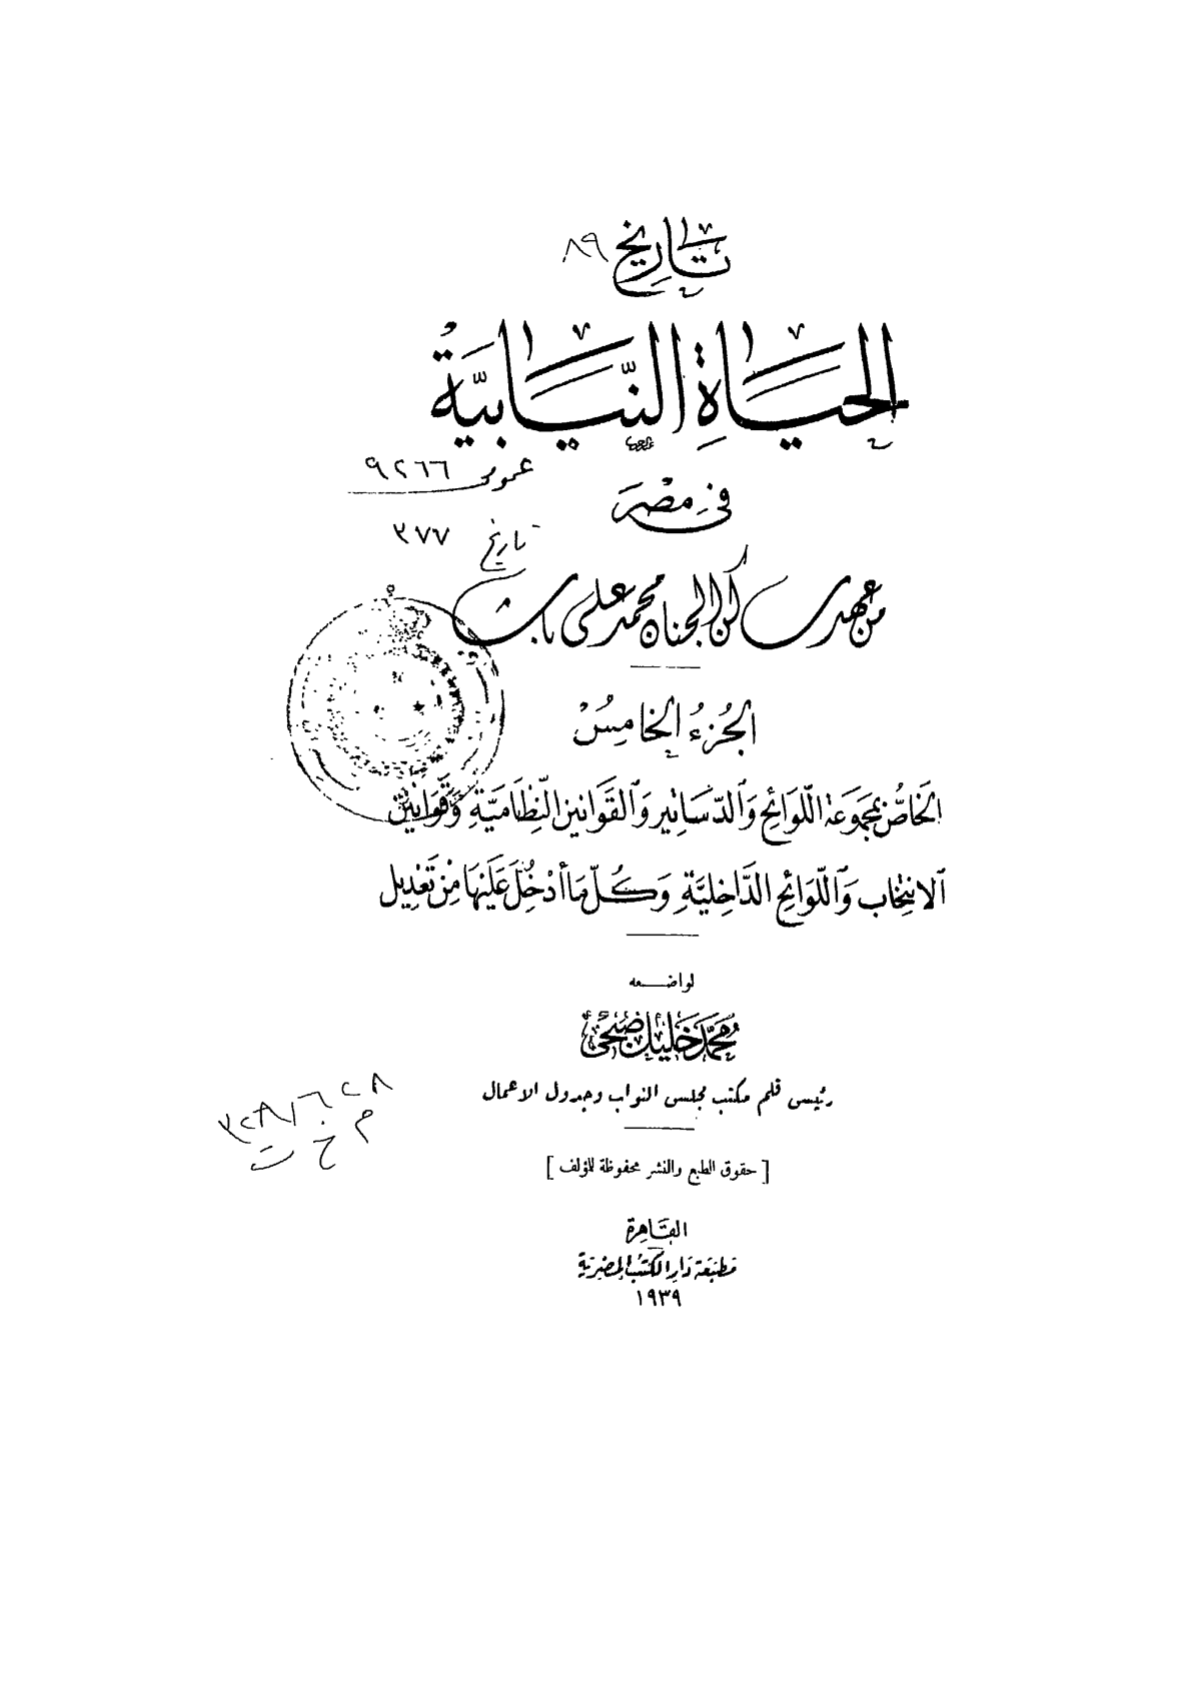 تاريخ ٨٩
الحَيَاةِ النِّيَابيَّة
عمومى ٩٢٦٦
فى مصر
تاريخ ٣٧٧
من عهد ساكن الجنان محمد على باشا
الجُزءُ الخامِسُ
الخَاصُّ بمجمَوعَة اللّوَائحِ وَالدّسَاتِير وَالقَوَانين النِّظَاميَّةِ وَقَوَانِين
الانتِخَاب وَاللّوَائحِ الدَّاخِليَّةِ وَكُلّ مَا أُدْخِلَ عَلَيْهَا مِنْ تَعْدِيل
لواضـــعه
مُحَمَّد خَليْل صُبْحى
رئيس قلم مكتب مجلس النواب وجدول الاعمال
م خ ت
[ حقوق الطبع والنشر محفوظة للمؤلف ]
القَاهِرة
مَطبَعَة دَار الكتُب المِصْرِيَّة
١٩٣٩